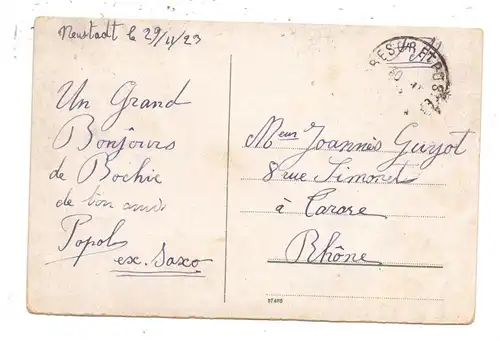 Neustadt le 29/11/23
Un Grand
Bonjours
de Bochie
de ton ami
Popol
ex. Saxo
TRESOR ET POSTES
Meur Joannès Guyot
8 rue Simonet
à Tarare
Rhône